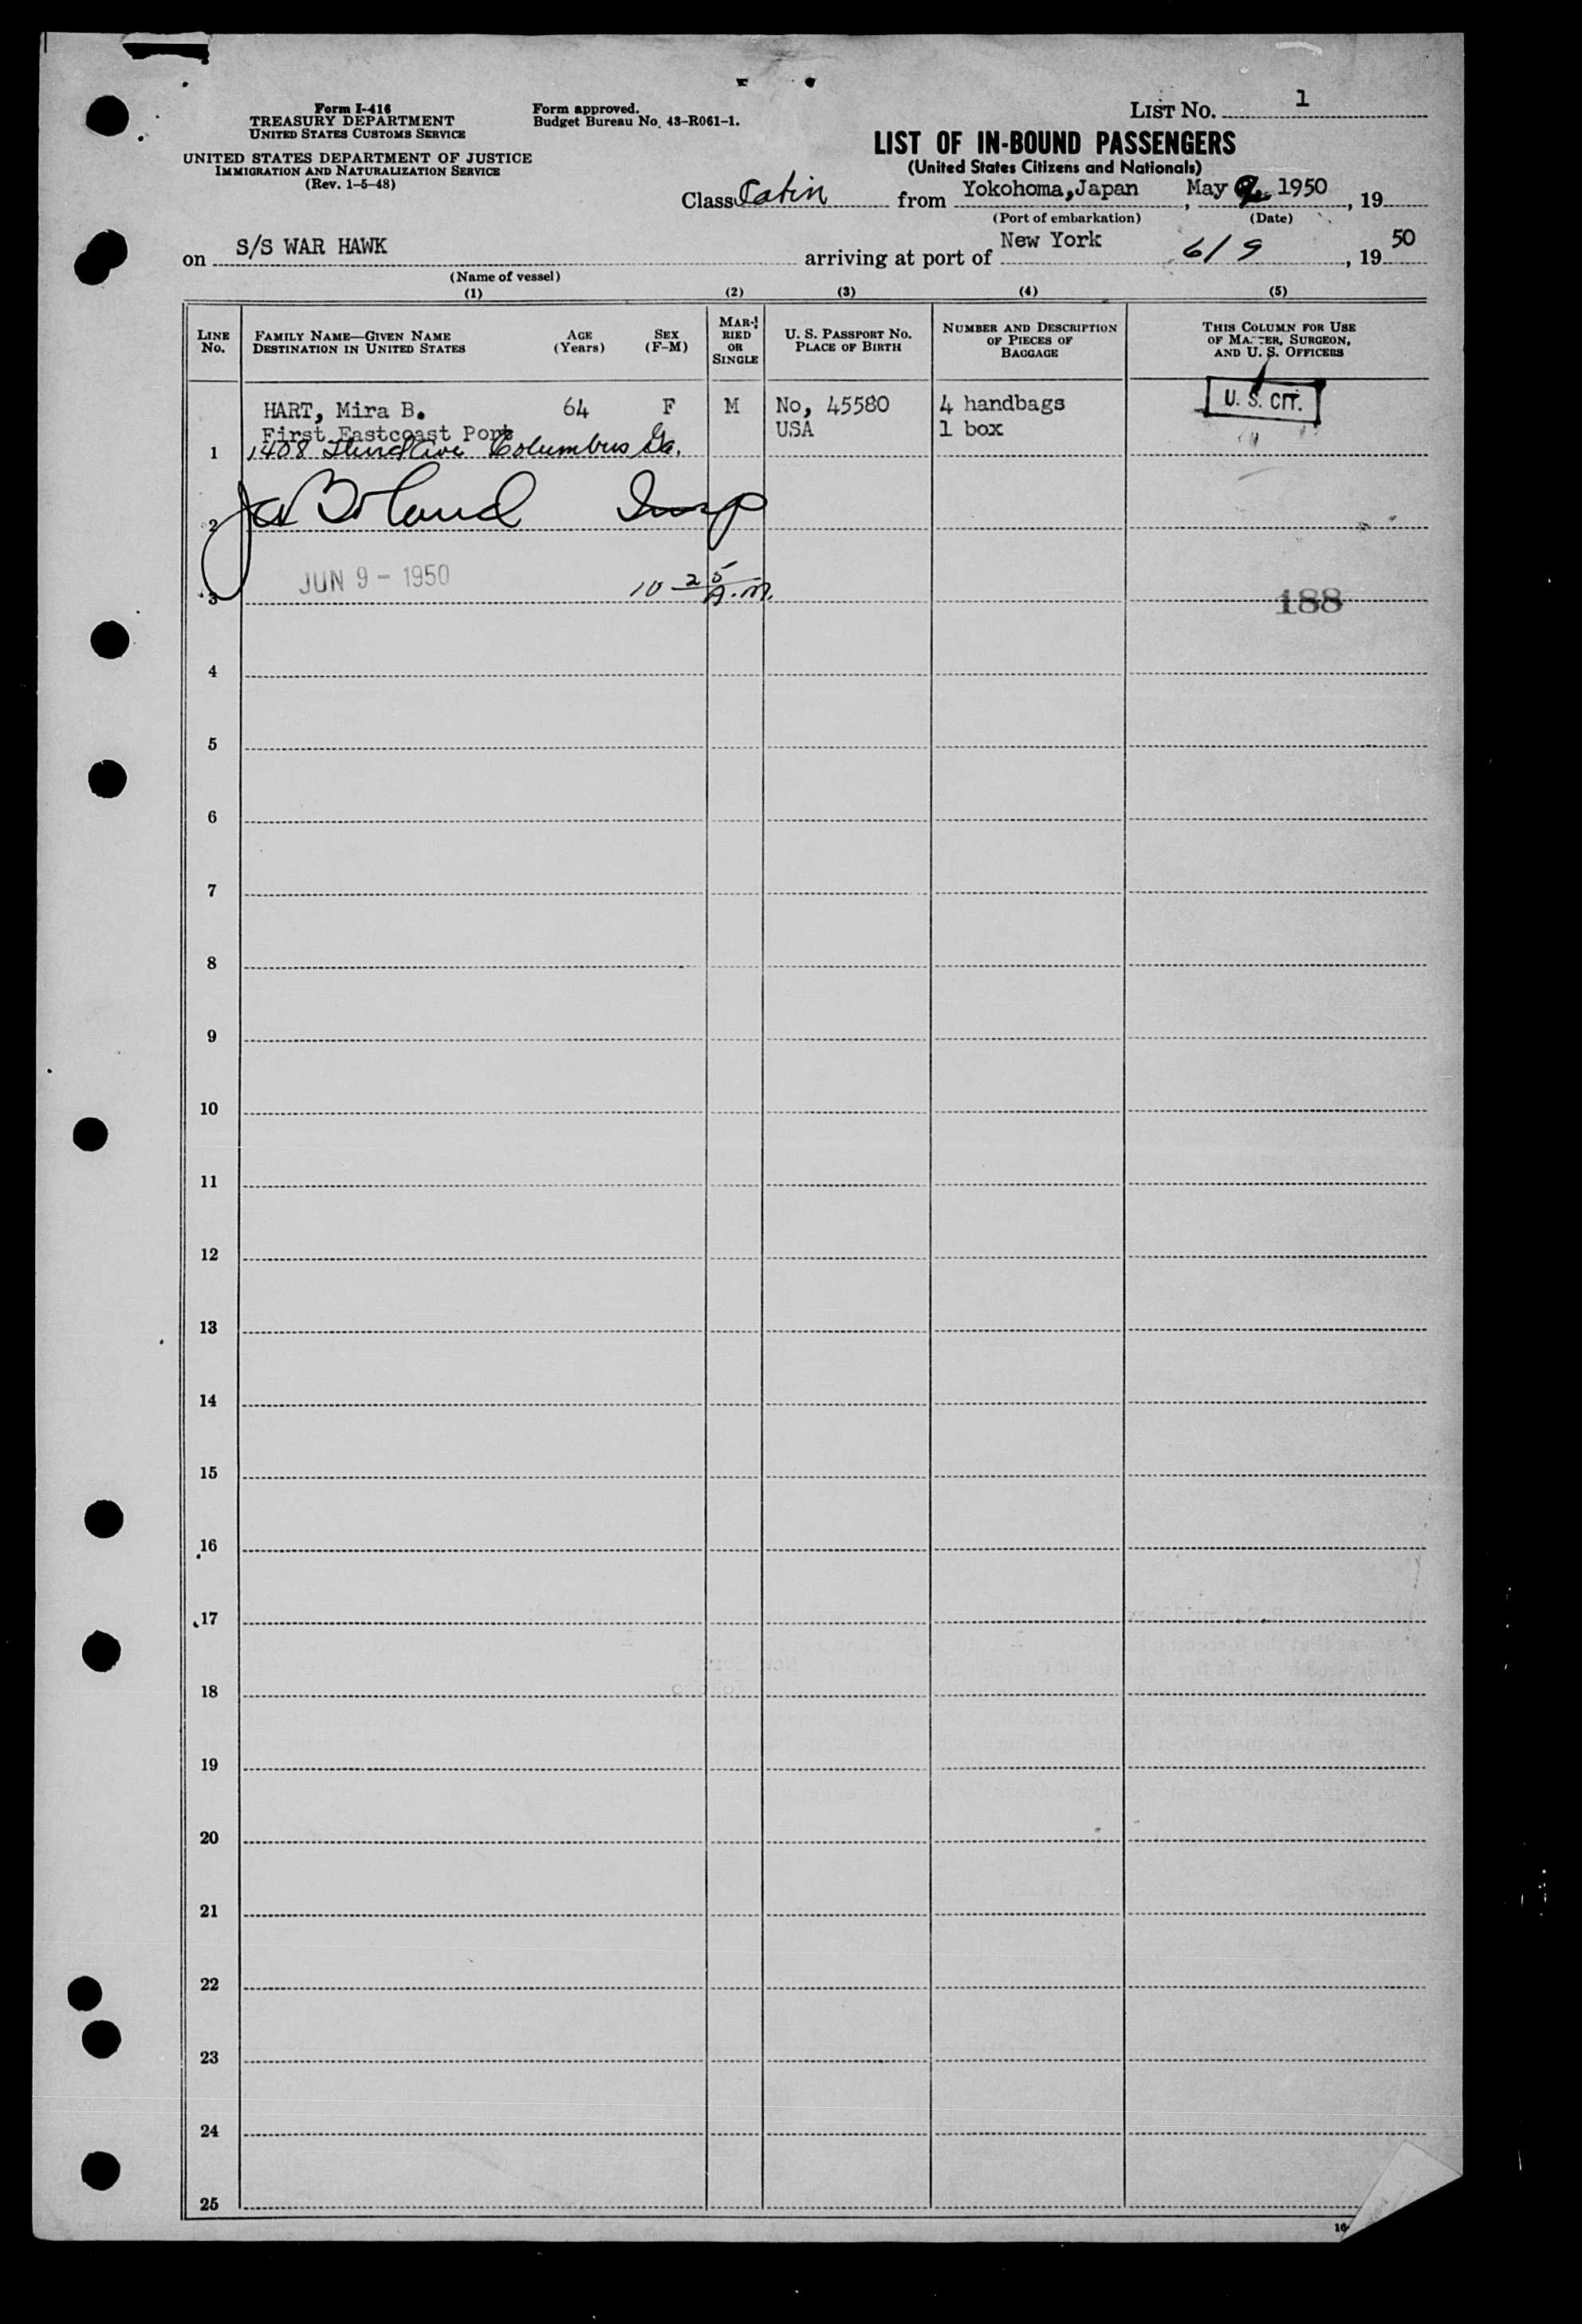 Form I-416
TREASURY DEPARTMENT
UNITED STATES CUSTOMS SERVICE
UNITED STATES DEPARTMENT OF JUSTICE
IMMIGRATION AND NATURALIZATION SERVICE
(Rev. 1-5-48)
Form approved.
Budget Bureau No. 43-R061-1.
LIST No. 1
LIST OF IN-BOUND PASSENGERS
(United States Citizens and Nationals)
Class Cabin from Yokohoma,Japan, May 1950, 19
(Port of embarkation) (Date)
on S/S WAR HAWK arriving at port of New York 6/9, 1950
(Name of vessel)
(1) (2) (3) (4) (5)
LINE No. FAMILY NAME—GIVEN NAME DESTINATION IN UNITED STATES AGE (Years) SEX (F-M) MARRIED OR SINGLE U. S. PASSPORT No. PLACE OF BIRTH NUMBER AND DESCRIPTION OF PIECES OF BAGGAGE THIS COLUMN FOR USE OF MASTER, SURGEON, AND U. S. OFFICERS
HART, Mira B. 64 F M No, 45580 4 handbags U. S. CIT.
First Eastcoast Port USA 1 box
1 1408 Third Ave Columbus Ga.
2 Insp
JUN 9 - 1950 10 25 A.M.
3 188
4
5
6
7
8
9
10
11
12
13
14
15
16
17
18
19
20
21
22
23
24
25
16